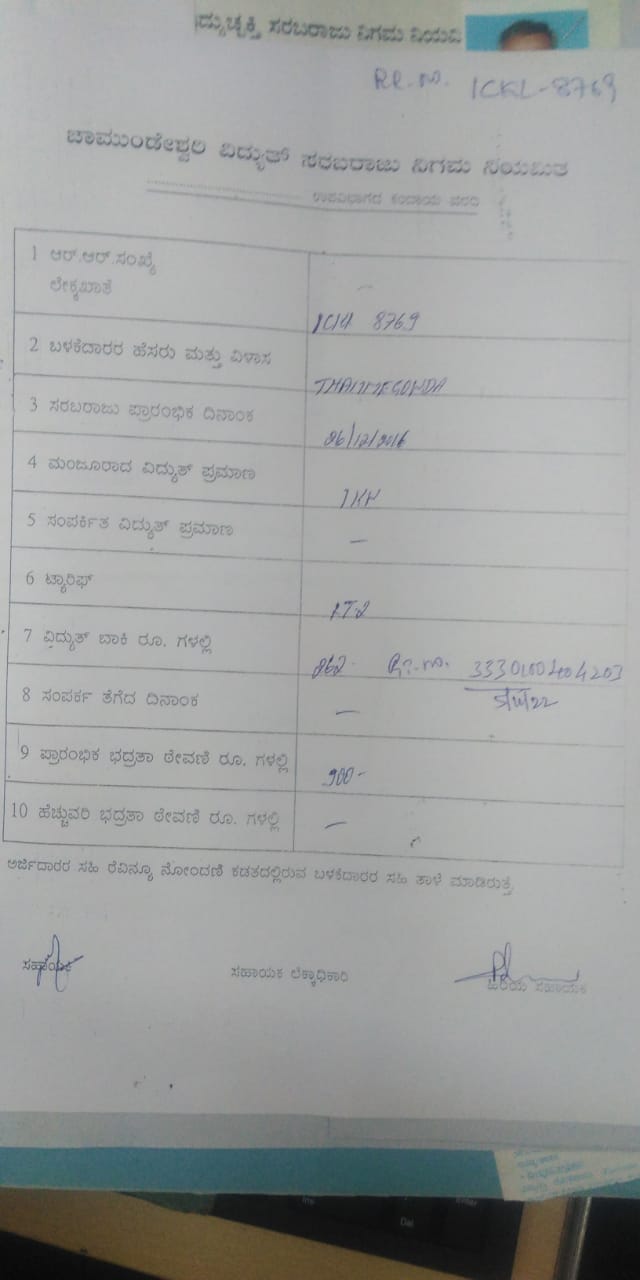 ಸರಬರಾಜು ನಿಗಮ ನಿಯಮಿ
RR.No. ICKL-8769
ಚಾಮುಂಡೇಶ್ವರಿ ವಿದ್ಯುತ್ ಸರಬರಾಜು ನಿಗಮ ನಿಯಮಿತ
ಉಪವಿಭಾಗದ ಕಂದಾಯ ವರದಿ
1 ಆರ್.ಆರ್.ಸಂಖ್ಯೆ
ಲೆಕ್ಕಖಾತೆ
8769
2 ಬಳಕೆದಾರರ ಹೆಸರು ಮತ್ತು ವಿಳಾಸ
3 ಸರಬರಾಜು ಪ್ರಾರಂಭಿಕ ದಿನಾಂಕ
26/12/2016
4 ಮಂಜೂರಾದ ವಿದ್ಯುತ್ ಪ್ರಮಾಣ
1KW
5 ಸಂಪರ್ಕಿತ ವಿದ್ಯುತ್ ಪ್ರಮಾಣ
—
6 ಟ್ಯಾರಿಫ್
LT2
7 ವಿದ್ಯುತ್ ಬಾಕಿ ರೂ. ಗಳಲ್ಲಿ
262-
8 ಸಂಪರ್ಕ ತೆಗೆದ ದಿನಾಂಕ
—
9 ಪ್ರಾರಂಭಿಕ ಭದ್ರತಾ ಠೇವಣಿ ರೂ. ಗಳಲ್ಲಿ
900-
10 ಹೆಚ್ಚುವರಿ ಭದ್ರತಾ ಠೇವಣಿ ರೂ. ಗಳಲ್ಲಿ
—
ಅರ್ಜಿದಾರರ ಸಹಿ ರೆವಿನ್ಯೂ ನೋಂದಣಿ ಕಡತದಲ್ಲಿರುವ ಬಳಕೆದಾರರ ಸಹಿ ತಾಳೆ ಮಾಡಿರುತ್ತೆ
ಸಹಾಯಕ ಸಹಾಯಕ ಲೆಕ್ಕಾಧಿಕಾರಿ ಹಿರಿಯ ಸಹಾಯಕ
Ins
Del